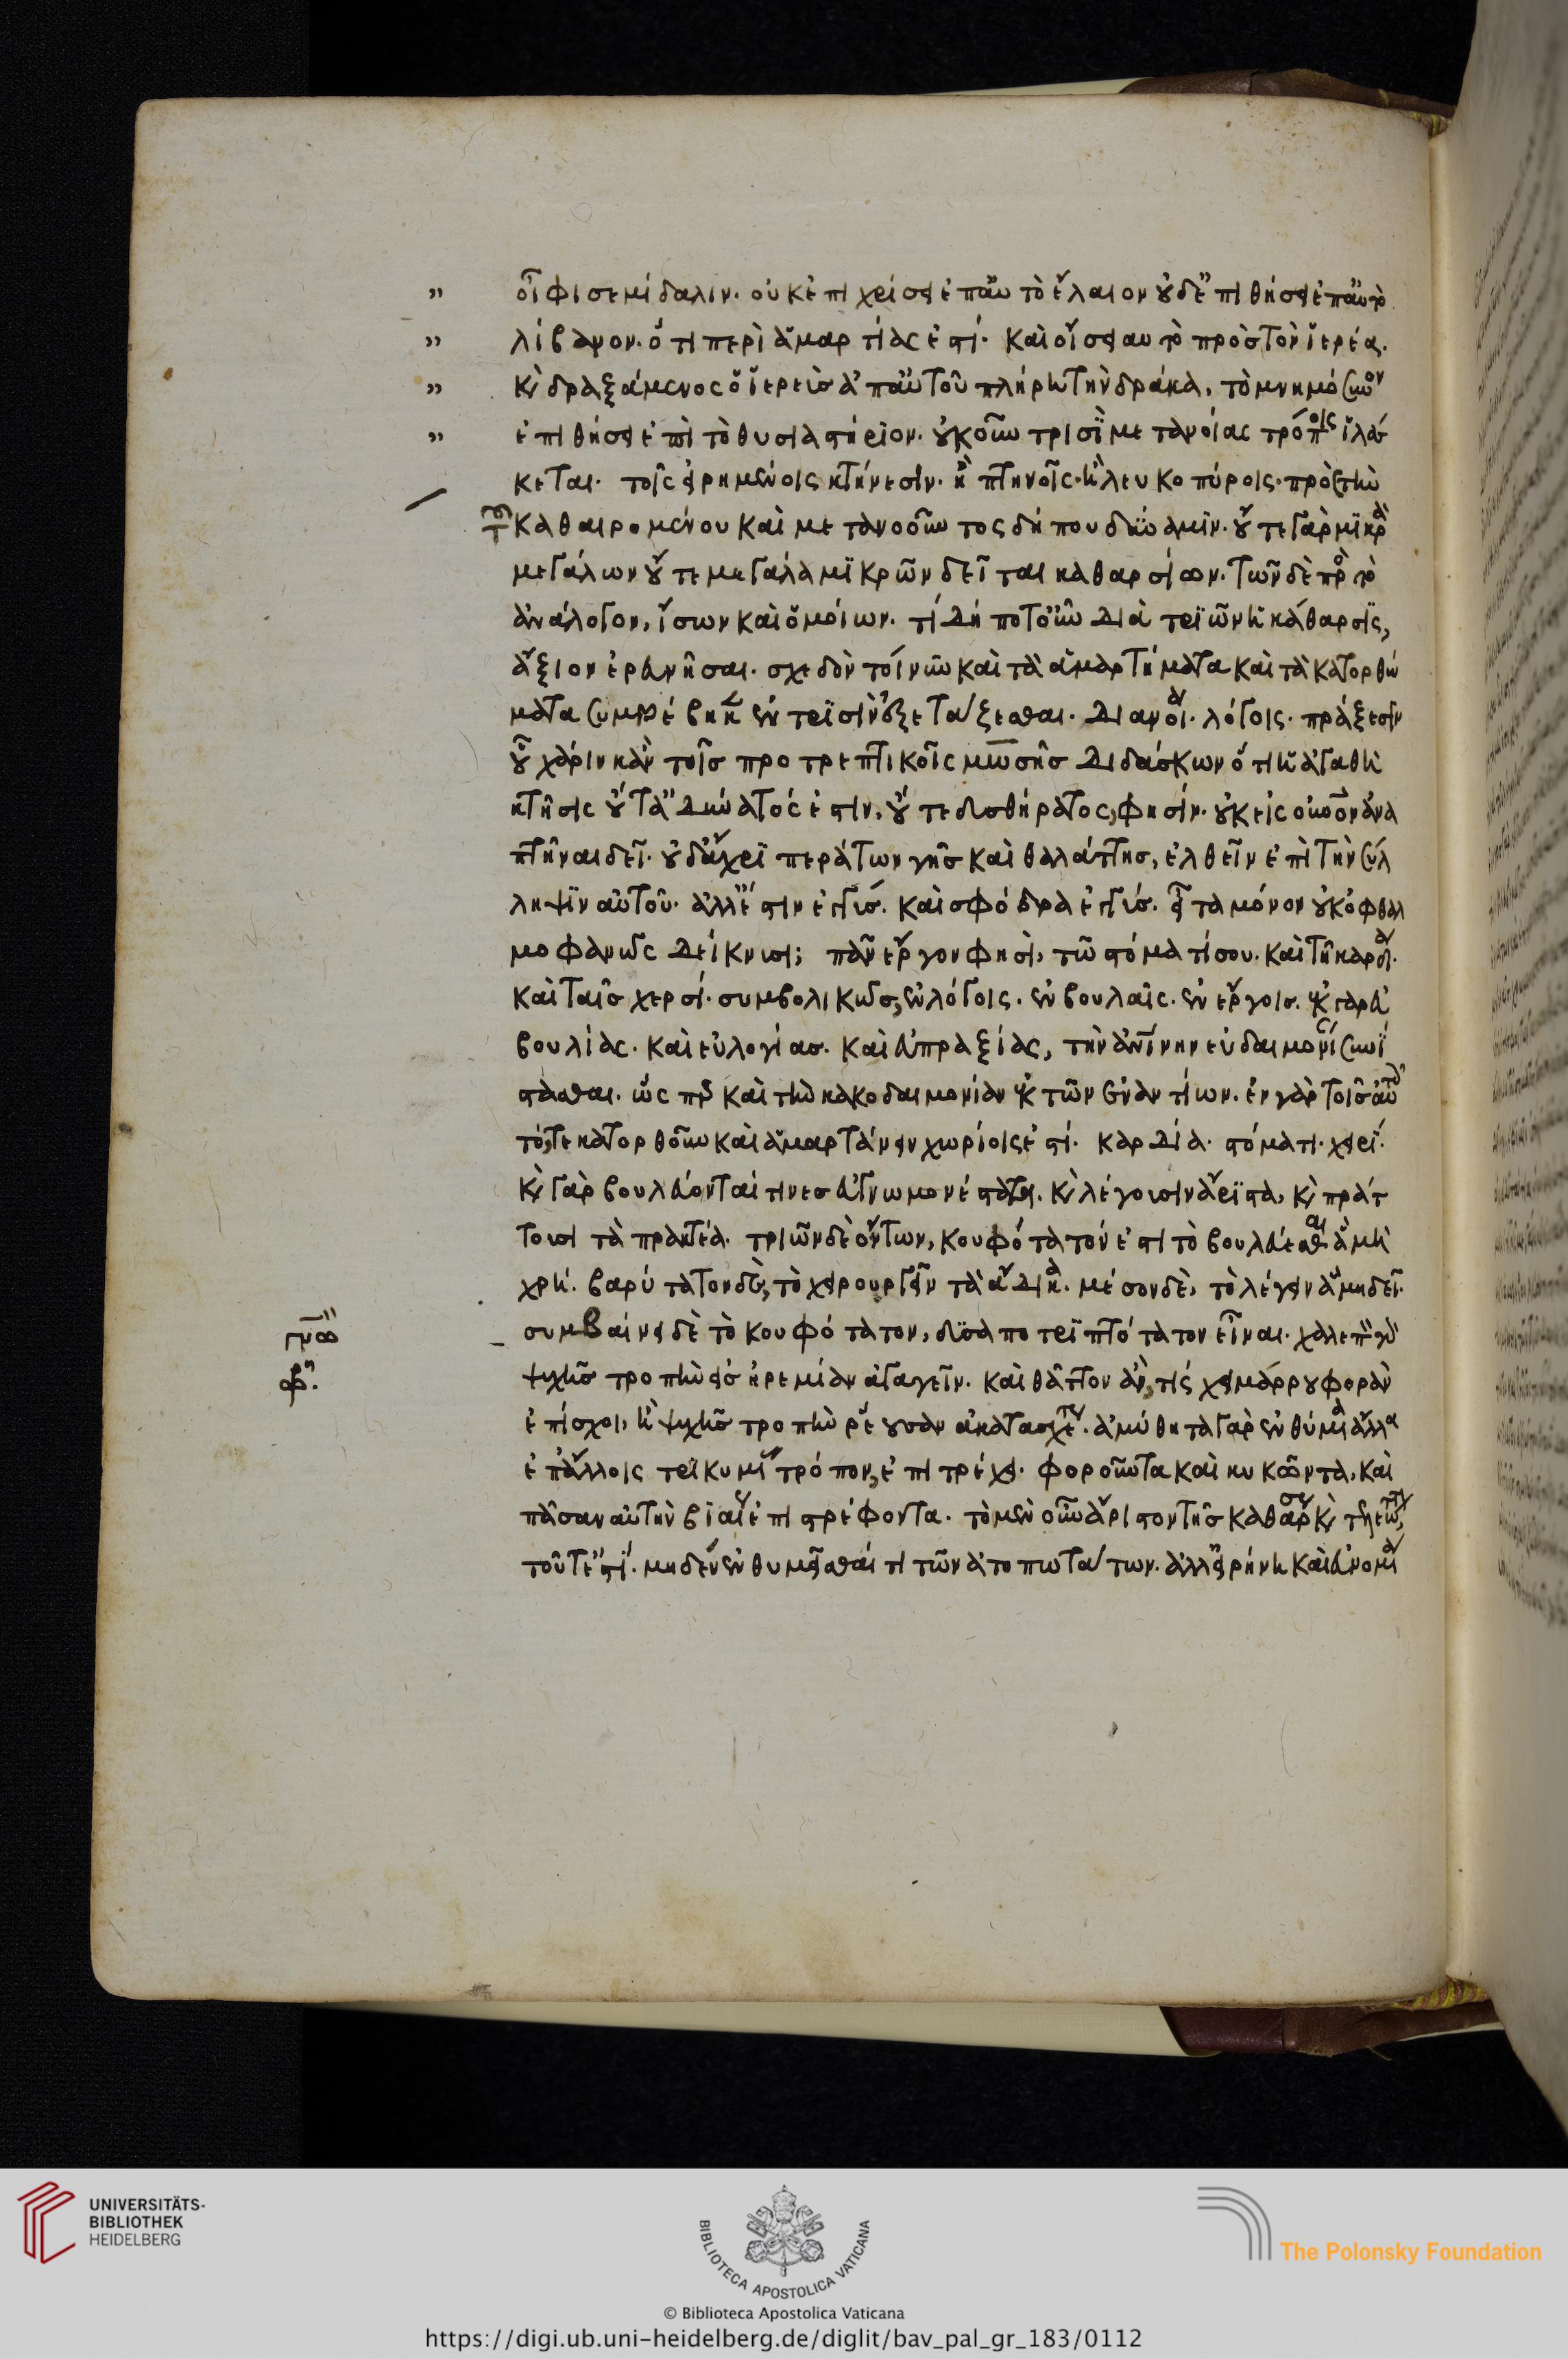 „ οἶφι σεμίδαλιν. οὐκ ἐπιχρίσει ἐπαὐτὸ ἔλαιον οὐδ' ἐπιθήσει ἐπαὐτὸ
„ λίβανον. ὅτι περὶ ἁμαρτίας ἐστί. καὶ οἴσει αυτὸ πρὸς τὸν ἱερέα.
„ κ(αὶ) δραξάμενος ὁ ἱερεὺς ἀπαὐτοῦ πλήρη τὴν δράκα, τὸ μνημόσυνον
„ ἐπιθήσει ἐπὶ τὸ θυσιαστήριον. οὐκοῦν τρισὶ μετανοίας τρόποις ἱλάσ
κεται. τοῖς εἰρημένοις κτήνεσιν. ἢ πτηνοῖς. ἢ λευκοπύροις. πρὸς τὴν
τοῦ καθαιρομένου καὶ μετανοοῦντος δήπου δύναμιν. οὔτε γὰρ μικρὰ
μεγάλων οὔτε μεγάλα μικρῶν δεῖται καθαρσίων. τῶν δὲ πρὸς τὸ
ἀνάλογον, ἴσων καὶ ὁμοίων. τί δήποτ' οὖν διὰ τριῶν ἡ κάθαρσις,
ἄξιον ἐρευνῆσαι. σχεδὸν τοίνυν καὶ τὰ ἁμαρτήματα καὶ τὰ κατορθώ
ματα συμβέβηκεν ἐν τρισὶν ἐξετάζεσθαι. διανοίᾳ. λόγοις. πράξεσιν
οὗ χάριν κἀν τοῖς προτρεπτικοῖς μωσῆς διδάσκων ὅτι ἡ ἀγαθὴ
κτῆσις οὔτ' ἀδύνατός ἐστιν, οὔτε δυσθήρατος, φησίν. οὐκ εἰς οὐρανὸν ἀνα
πτῆναι δεῖ. οὐδ' ἄχρι περάτων γῆς καὶ θαλάττης, ἐλθεῖν ἐπὶ τὴν σύλ
ληψιν αὐτοῦ. ἀλλ' ἔστιν ἐγγύς. καὶ σφόδρα ἐγγύς. εἶτα μόνον οὐκ ὀφθαλ
μοφανῶς δείκνυσι; πᾶν ἔργον φησὶ, τῶ στόματί σου. καὶ τῆ καρδίᾳ.
καὶ ταῖς χερσί. συμβολικῶς, ἐν λόγοις. ἐν βουλαῖς. ἐν ἔργοις. ἐκ γὰρ εὐ
βουλίας. καὶ εὐλογίας. καὶ εὐπραξίας, τὴν ἀν(θρωπ)ίνην εὐδαιμονίαν συνί
στασθαι. ὡς περ καὶ τὴν κακοδαιμονίαν ἐκ τῶν ἐναντίων. ἐν γὰρ τοῖς αὐτοῖς
τό, τε κατορθοῦν καὶ ἁμαρτάνειν χωρίοις ἐστί. καρδία. στόματι. χειρί.
κ(αὶ) γὰρ βουλεύονταί τινες εὐγνωμονέστατα. κ(αὶ) λέγουσιν ἄριστα, κ(αὶ) πράτ
τουσι τὰ πρακτέα. τριῶν δὲ ὄντων, κουφότατον ἐστι τὸ βουλεύεσθαι ἃ μὴ
χρή. βαρύτατον δὲ, τὸ χειρουργεῖν τὰ ἄδικα. μέσον δὲ, τὸ λέγειν ἃ μὴ δεῖ.
συμβαίνει δὲ τὸ κουφότατον, δυσαποτριπτότατον εἶναι. χαλεπὸν γὰρ
ψυχῆς τροπὴν εἰς ἠρεμίαν ἀγαγεῖν. καὶ θᾶττον ἄν, τίς χειμάρρου φορὰν
ἐπίσχοι, ἢ ψυχῆς τροπὴν ῥέουσαν ἀκατασχέτως. ἀμύθητα γὰρ ἐνθύμια ἄλλα
ἐπ' ἄλλοις τρικυμίας τρόπον, ἐπιτρέχει. φοροῦντα καὶ κυκῶντα, καὶ
πᾶσαν αὐτὴν βίᾳ ἐπιστρέφοντα. τὸ μὲν οὖν ἄριστον τῆς καθάρσεως κ(αὶ) τελεώτατον,
τοῦτ' ἐστί. μηδὲν ἐνθυμεῖσθαί τι τῶν ἀτοπωτάτων. ἀλλ' εἰρήνη καὶ εὐνομίᾳ
UNIVERSITÄTS-
BIBLIOTHEK
HEIDELBERG
BIBLIOTECA APOSTOLICA VATICANA
The Polonsky Foundation
© Biblioteca Apostolica Vaticana
https://digi.ub.uni-heidelberg.de/diglit/bav_pal_gr_183/0112